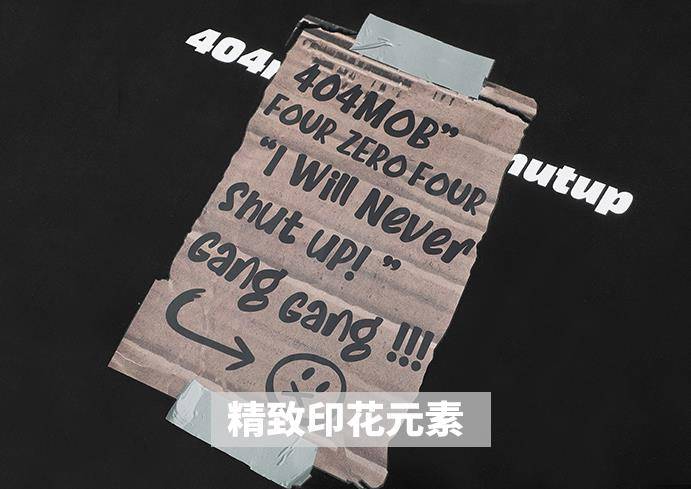 404MOB”
FOUR ZERO FOUR
“I Will Never
Shut UP! ”
Gang Gang !!!
精致印花元素